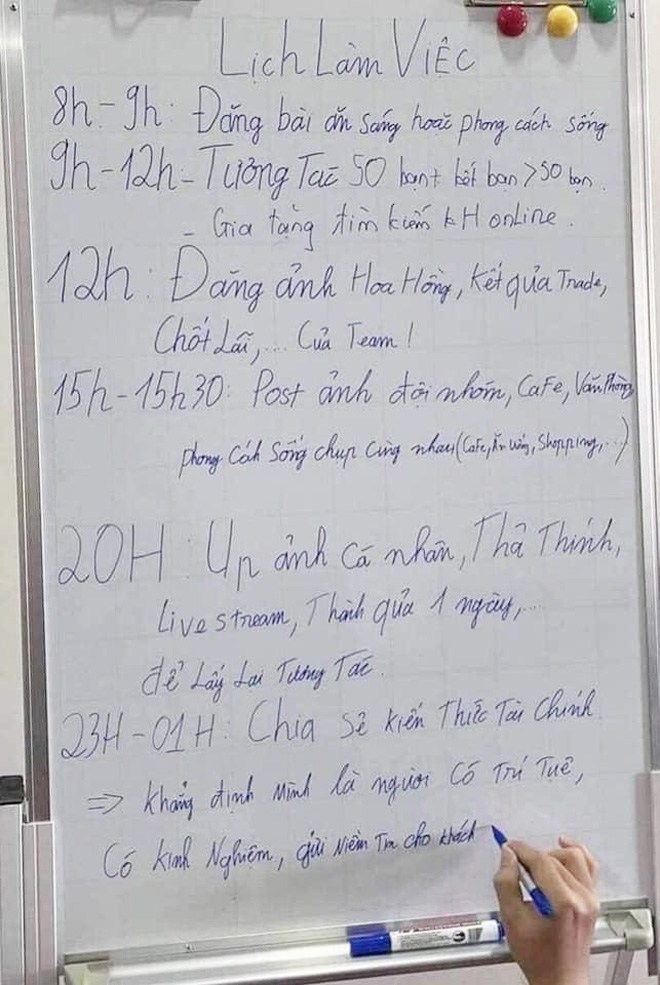 Lịch Làm Việc
8h - 9h: Đăng bài ăn sáng hoặc phong cách sống
9h - 12h: - Tương Tác 50 bạn + kết bạn > 50 bạn.
- Gia tăng tìm kiếm KH online.
12h: Đăng ảnh Hoa Hồng, kết quả Trade,
Chốt Lãi,... Của Team!
15h - 15h30: Post ảnh đội nhóm, CaFe, Văn Phòng
phong Cách Sống chụp Cùng nhau (Cafe, Ăn uống, Shopping,...)
20H: Up ảnh Cá nhân, Thả Thính,
Live stream, Thành quả 1 ngày,...
để Lấy Lại Tương Tác.
23H - 01H: Chia sẻ kiến Thức Tài Chính.
=> khẳng định Mình là người Có Trí Tuệ,
Có kinh Nghiệm, gửi Niềm Tin cho khách